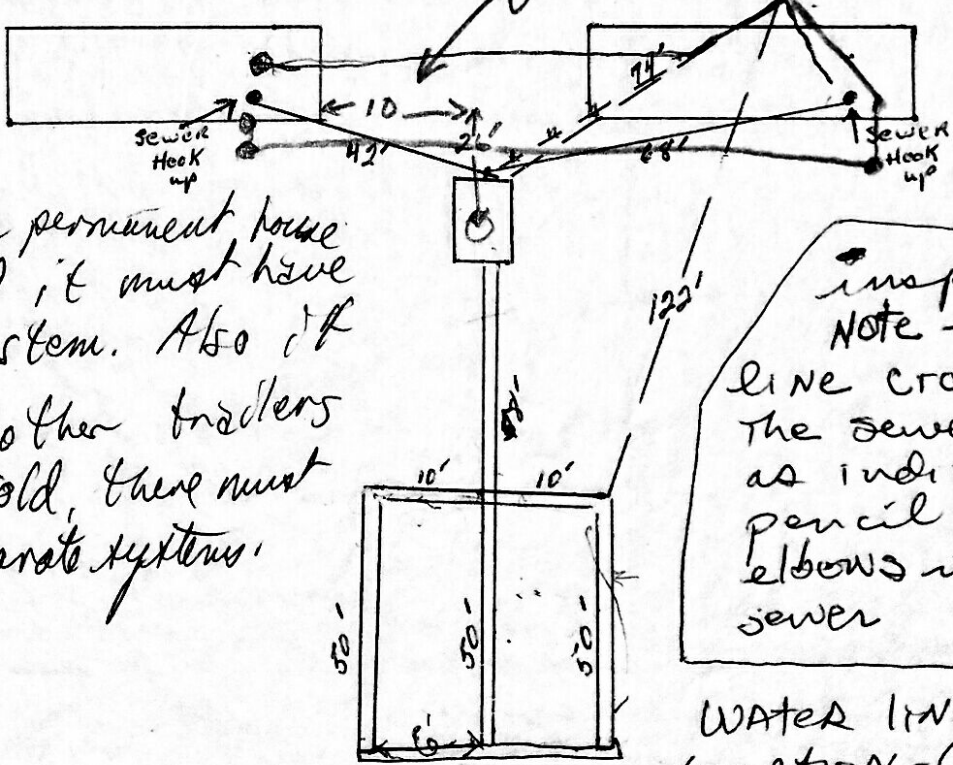 74'
10
26'
Sewer
Hook
up
42'
68'
Sewer
Hook
up
permanent house
it must have
stem. Also if
other trailers
old, there must
arate systems.
122'
insp
Note -
line cro
The sewe
as indi
pencil
elbows
sewer
10'
10'
50'
50'
50'
6'
Water lin